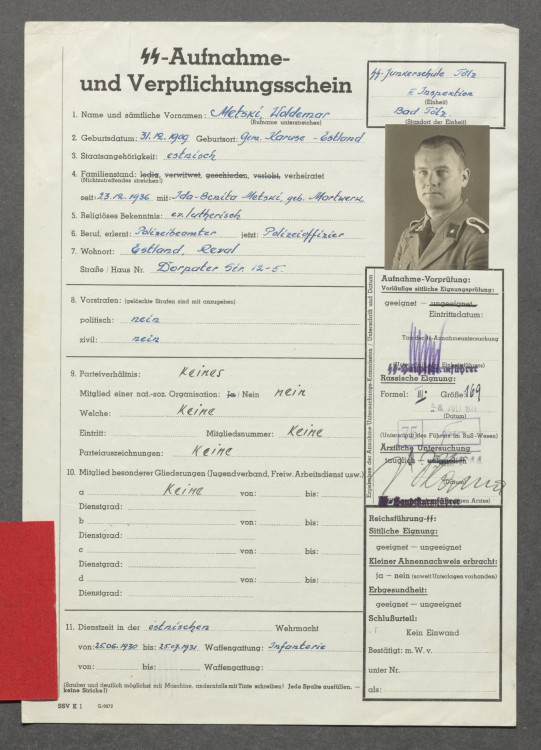 ᛋᛋ-Aufnahme-
und Verpflichtungsschein
ᛋᛋ-Junkerschule Tölz
Inspektion
(Einheit)
Bad Tölz
(Standort der Einheit)
1. Name und sämtliche Vornamen: Metski, Woldemar
(Rufname unterstreichen)
2. Geburtsdatum: 31.12.1909 Geburtsort: Gem. Karuse - Estland
3. Staatsangehörigkeit: estnisch
4. Familienstand: ledig, verwitwet, geschieden, verlobt, verheiratet
(Nichtzutreffendes streichen!)
seit: 23.12.1936 mit: Ida-Benita Metski, geb. Martverk
5. Religiöses Bekenntnis: ev. lutherisch
6. Beruf, erlernt: Polizeibeamter jetzt: Polizeioffizier
7. Wohnort: Estland, Reval
Straße / Haus Nr. Dorpater Str. 12-5.
8. Vorstrafen: (gelöschte Strafen sind mit anzugeben)
politisch: nein
zivil: nein
9. Parteiverhältnis: Keines
Mitglied einer nat.-soz. Organisation: Ja / Nein nein
Welche: Keine
Eintritt: Mitgliedsnummer: Keine
Parteiauszeichnungen: Keine
10. Mitglied besonderer Gliederungen (Jugendverband, Freiw. Arbeitsdienst usw.)
a Keine von: bis:
Dienstgrad:
b von: bis:
Dienstgrad:
c von: bis:
Dienstgrad:
d von: bis:
Dienstgrad:
11. Dienstzeit in der estnischen Wehrmacht
von: 25.06.1930 bis: 25.07.1931 Waffengattung: Infanterie
von: bis: Waffengattung:
(Sauber und deutlich möglichst mit Maschine, andernfalls mit Tinte schreiben! Jede Spalte ausfüllen, —
keine Striche!)
SSV K 1
Ergebnisse der Annahme-Untersuchungs-Kommission / Unterschrift und Datum
Aufnahme-Vorprüfung:
Vorläufige sittliche Eignungsprüfung:
geeignet — ungeeignet
Eintrittsdatum:
Tag der ᛋᛋ-Annahmeuntersuchung
Rassische Eignung:
Formel: III Größe: 169
(Datum)
(Unterschrift des Führers im RuS-Wesen)
Ärztliche Untersuchung
tauglich — untauglich
(Datum)
Reichsführung-ᛋᛋ:
Sittliche Eignung:
geeignet — ungeeignet
Kleiner Ahnennachweis erbracht:
ja — nein (soweit Unterlagen vorhanden)
Erbgesundheit:
geeignet — ungeeignet
Schlußurteil:
Kein Einwand
Bestätigt: m. W. v.
unter Nr.
als: